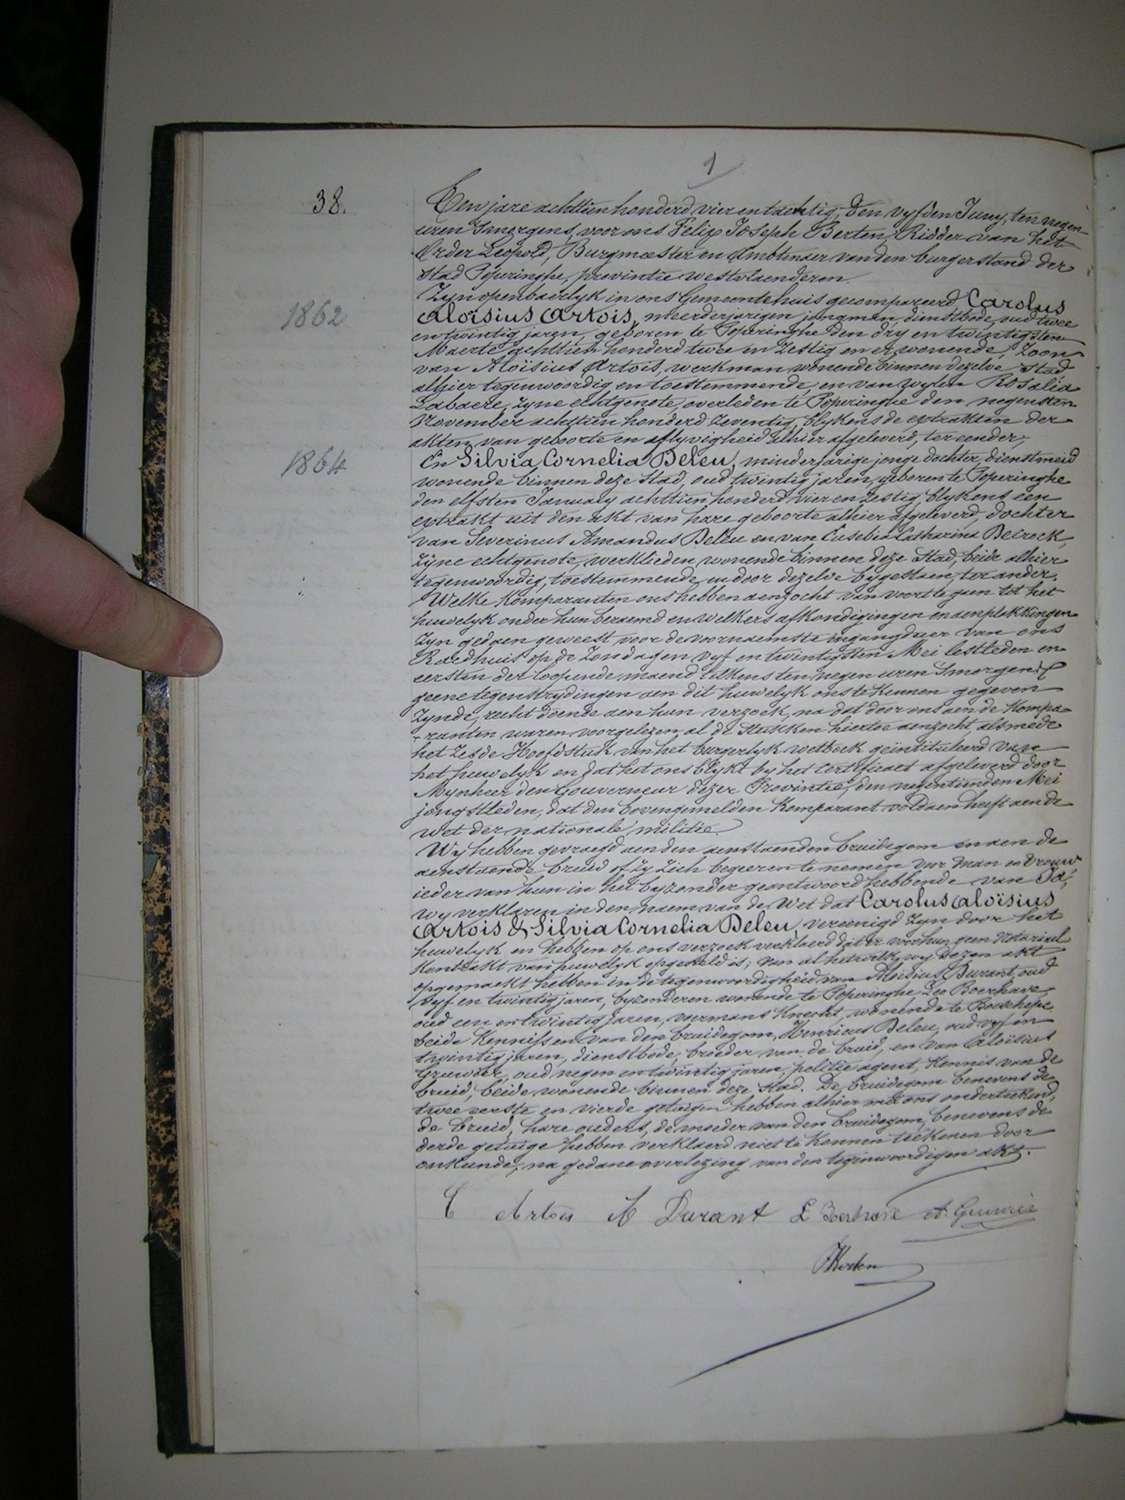 1
38.
Ten jare achttien honderd vier en tachtig, den vyfden Juny, ten negen
uren 's morgens, voor ons Felix Joseph Berten, Ridder van het
Order Leopold, Burgmeester en Ambtenaer van den burgerstand der
Stad Poperinghe, provintie Westvlaenderen.
Zyn openbaerlyk in ons Gemeentehuis gecompareerd, Carolus
1862
Aloïsius Artois, meerderjarigen jongman, dienstbode, oud twee
en twintig jaren, geboren te Poperinghe den dry en twintigsten
Maerte achttien honderd twee en zestig en er wonende, Zoon
van Aloïsius Artois, werkman wonende binnen dezelve Stad,
alhier tegenwoordig en toestemmende, en van wylen Rosalia
Labaere, zyne echtgenote, overleden te Poperinghe den negensten
November achttien honderd zeventig, blykens de extrakten der
akten van geboorte en aflyvigheid alhier afgeleverd, ter eender;
1864
En Silvia Cornelia Deleu, minderjarige jonge dochter, dienstmeid
wonende binnen deze Stad, oud twintig jaren, geboren te Poperinghe
den elfsten January achttien honderd vier en zestig, blykens een
extrakt uit den akt van hare geboorte alhier afgeleverd, dochter
van Severinus Amandus Deleu en van Eusebia Catharina
zyne echtgenote, werklieden, wonende binnen deze Stad, beide alhier
tegenwoordig, toestemmende, en door dezelve bygestaen, ter ander.
Welke Komparanten ons hebben aenzocht van voort te gaen tot het
huwelyk onder hun beraemd en welkers afkondigingen en aenplekkingen
zyn gedaen geweest voor de voornaemste ingangdeur van ons
Raedhuis op de Zondagen vyf en twintigsten Mei lestleden en
eersten der loopende maend telkens ten negen uren 's morgens
geene tegenstrydingen aen dit huwelyk ons te kennen gegeven
zynde, recht doende aen hun verzoek, na dat door ons aen de Kompa-
-ranten waren voorgelezen al de Stukken hiertoe aenzocht, alsmede
het zesde Hoofdstuk van het burgerlyk wetboek geintituleerd van
het huwelyk en dat het ons blykt by het certificaet afgeleverd door
Mynheer den Gouverneur dezer Provintie, den negentienden Mei
jongstleden, dat den bovengemelden Komparant voldaen heeft aen de
wet der nationale militie.
Wy hebben gevraegd aen den aenstaenden bruidegom en aen de
aenstaende bruid of zy zich begeeren te nemen voor man en vrouw
ieder van hun in het byzonder geantwoord hebbende van Ja,
wy verklaren in den naem van de Wet dat Carolus Aloïsius
Artois & Silvia Cornelia Deleu, vereenigd zyn door het
huwelyk en hebben op ons verzoek verklaerd dat er voor hun geen Notariael
Kontrakt van huwelyk opgesteld is; van al hetwelk wy dezen akt
opgemaekt hebben in de tegenwoordigheid van Aloïsius Durant, oud
vyf en twintig jaren, byzonderen wonende te Poperinghe, Leo
oud een en twintig jaren, Knecht, wonende te
beide kennissen van den bruidegom, Henricus Deleu, oud vyf en
twintig jaren, dienstbode, broeder van de bruid, en van Aloïsius
oud negen en twintig jaren, politie agent, kennis van de
bruid, beide wonende binnen deze Stad. De bruidegom benevens de
twee eerste en vierde getuigen hebben alhier met ons onderteekend,
de bruid, hare ouders, de moeder van den bruidegom, benevens de
derde getuige hebben verklaerd niet te konnen teekenen door
onkunde, na gedane overlezing van den tegenwoordigen akt.
C Artois A Durant L A
Berten